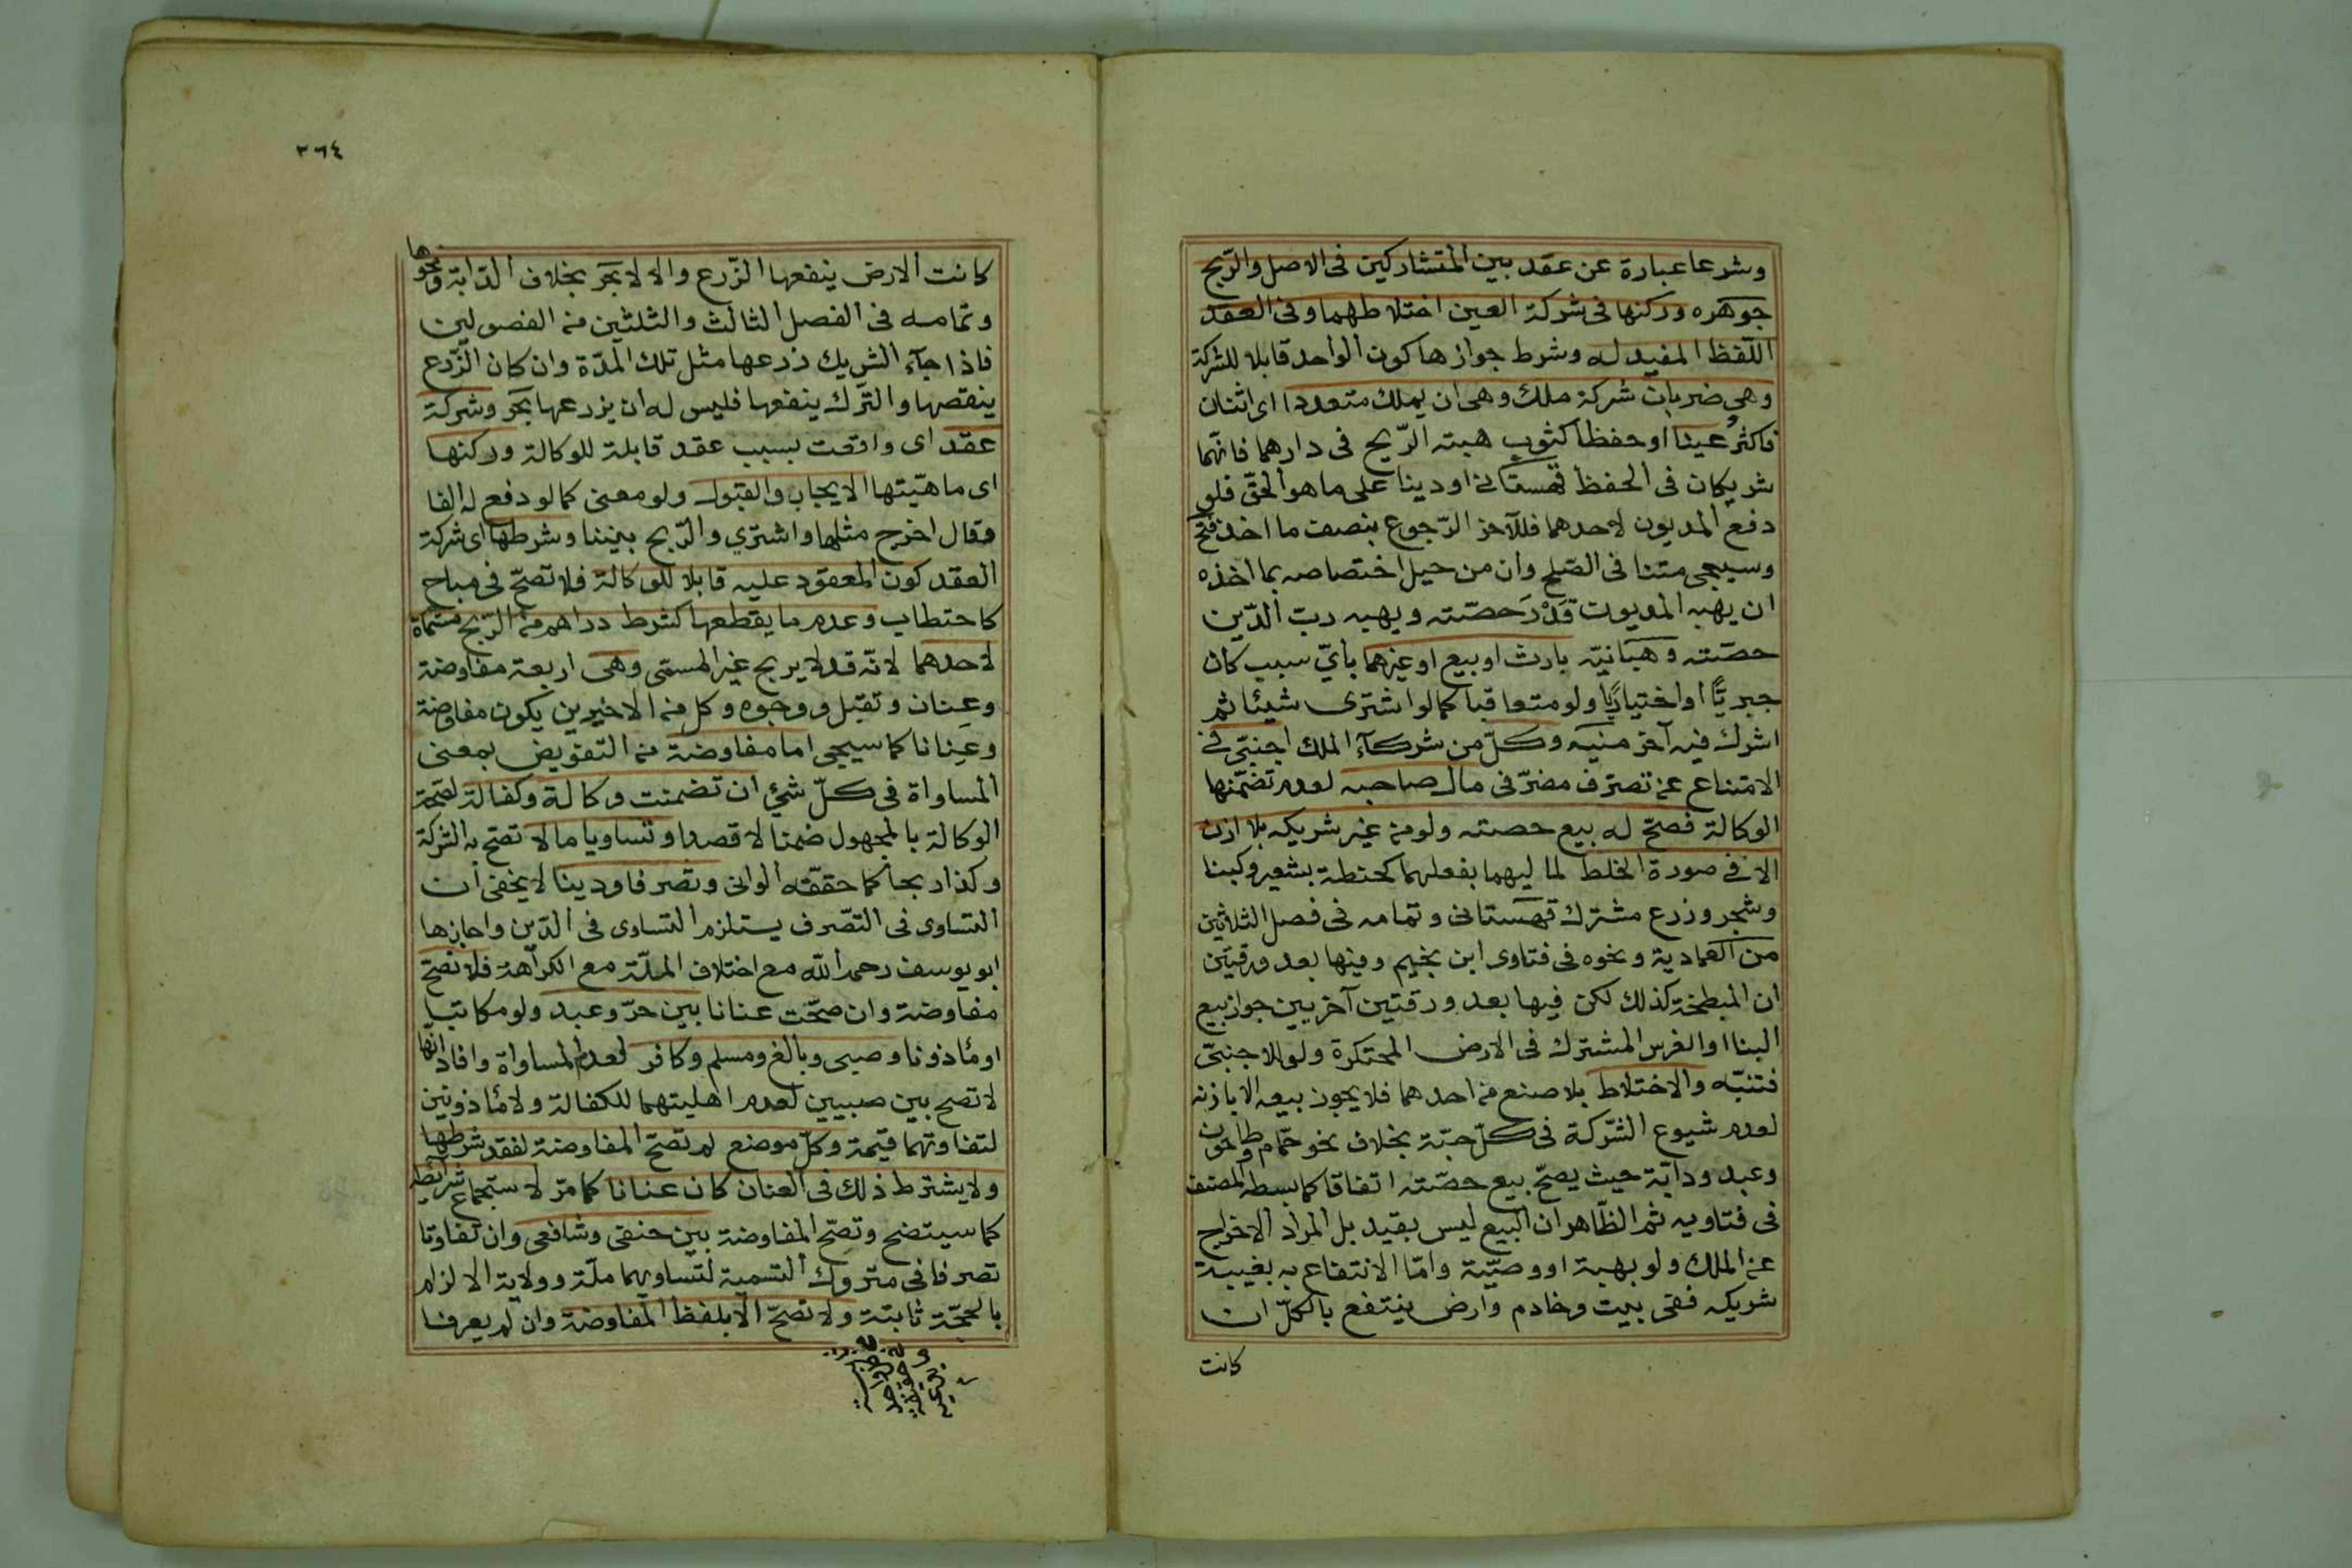 وشرعا عبارة عن عقد بين المتشاركين فى الاصل والرّبح
جوهره وركنها فى شركة العين اختلاطهما وفى العقد
اللّفظ المفيد له وشرط جوازها كون الواحد قابلا للشركة
وهى ضربان شركة ملك وهى ان يملك متعدد اى اثنان
فاكثر عينا او حفظا كثوب هبته الرّيح فى دارهما فانّهما
شريكان فى الحفظ قهستانى او دينا على ما هو الحقّ فلو
دفع المديون لاحدهما فللآخر الرّجوع بنصف ما اخذ فتح
وسيجى متنا فى الصّلح وان من حيل اختصاصه بما اخذه
ان يهبه المديون قَدْرَ حصّته ويهبه ربّ الدّين
حصّته وهبانيّه بارث او بيع او غيرهما بايّ سبب كان
جبريّا او اختياريّا ولو متعاقبا كما لو اشترى شيئا ثم
اشرك فيه آخر منيه وكلّ من شركآء الملك اجنبىّ فى
الامتناع عن تصرّف مضرّ فى مال صاحبه لعدم تضمّنها
الوكالة فصحّ له بيع حصته ولو من غير شريكه بلا اذن
الا فى صورة الخلط لماليهما بفعلهما كحنطة بشعير وكبنا
وشجر وزرع مشترك قهستانى وتمامه فى فصل الثلاثين
من العمادية ونحوه فى فتاوى ابن نجيم وفيها بعد ورقتين
ان المبطخة كذلك لكن فيها بعد ورقتين آخريين جواز بيع
البنا او الغرس المشترك فى الارض المحتكرة ولو لاجنبىّ
فتنبّه والاختلاط بلا صنع من احدهما فلا يجوز بيعه الا باذنه
لعدم شيوع الشّركة فى كلّ حبّة بخلاف نحو حمّام وطاحون
وعبد ودابّة حيث يصحّ بيع حصّته اتفاقا كما بسطه المصنف
فى فتاويه ثم الظّاهر ان البيع ليس بقيد بل المراد الاخراج
عن الملك ولو بهبة او وصيّة وامّا الانتفاع به بغيبة
شريكه ففى بيت وخادم وارض ينتفع بالكلّ ان
كانت
٣٦٤
كانت الارض ينفعها الزّرع والا لا بَحَر بخلاف الدّابة ونحوها
وتمامه فى الفصل الثالث والثلثين من الفصولين
فاذا جآء الشريك زرعها مثل تلك المدّة وان كان الزّرع
ينقصها والتّرك ينفعها فليس له ان يزرعها بَحَر وشركة
عقد اى واقعت بسبب عقد قابلة للوكالة وركنها
اى ماهيّتها الايجاب والقبول ولو معنى كما لو دفع له الفا
وقال اخرج مثلها واشتري والرّبح بيننا وشرطها اى شركة
العقد كون المعقود عليه قابلا للوكالة فلا تصحّ فى مباح
كاحتطاب وعدم ما يقطعها كشرط دراهم من الرّبح مسمّاة
لاحدهما لانّه قد لا يربح غير المسمّى وهى اربعة مفاوضة
وعِنان وتقبل ووجوه وكل من الاخيرين يكون مفاوضة
وعِنانا كما سيجى اما مفاوضة من التّفويض بمعنى
المساواة فى كلّ شئ ان تضمنت وكالة وكفالة لصّحة
الوكالة بالمجهول ضمنا لا قصدا وتساويا ما لا تصحّ به الشركة
وكذا ربحا كما حققّه الوانى وتصرفا ودينا لا يخفى ان
التساوى فى التصّرف يستلزم التساوى فى الدّين واجازها
ابو يوسف رحمه اللّه مع اختلاف الملّة مع الكراهة فلا تصحّ
مفاوضة وان صحّت عنانا بين حرّ وعبد ولو مكاتبا
او مأذونا وصبى وبالغ ومسلم وكافر لعدم المساواة وافاد انّها
لا تصح بين صبيين لعدم اهليتهما للكفالة ولا مأذونين
لتفاوتهما قيمة وكلّ موضع لم تصحّ المفاوضة لفقد شرطها
ولا يشترط ذلك فى العنان كان عنانا كما مرّ لاستجماع شرائطه
كما سيتضح وتصّح المفاوضة بين حنفى وشافعى وان تفاوتا
تصرفا فى متروك التسمية لتساويهما ملّة وولاية الالزام
بالحجّة ثابتة ولا تصحّ الا بلفظ المفاوضة وان لم يعرفا